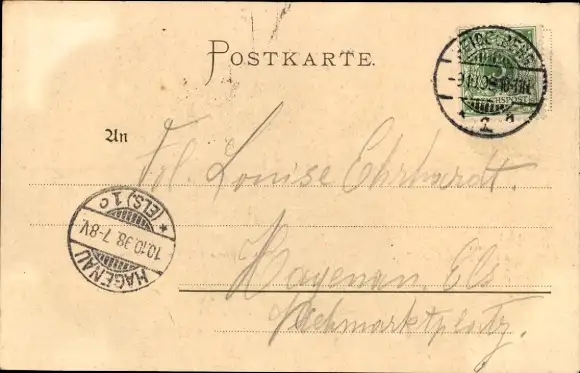 POSTKARTE.
HEIDELBERG
9.10.98 10-11N.
REICHSPOST
An
Frl. Louise Ehrhardt.
HAGENAU
10.10.98. 7-8V.
* (ELS) 1 c
Hagenau, Els
Viehmarktplatz.